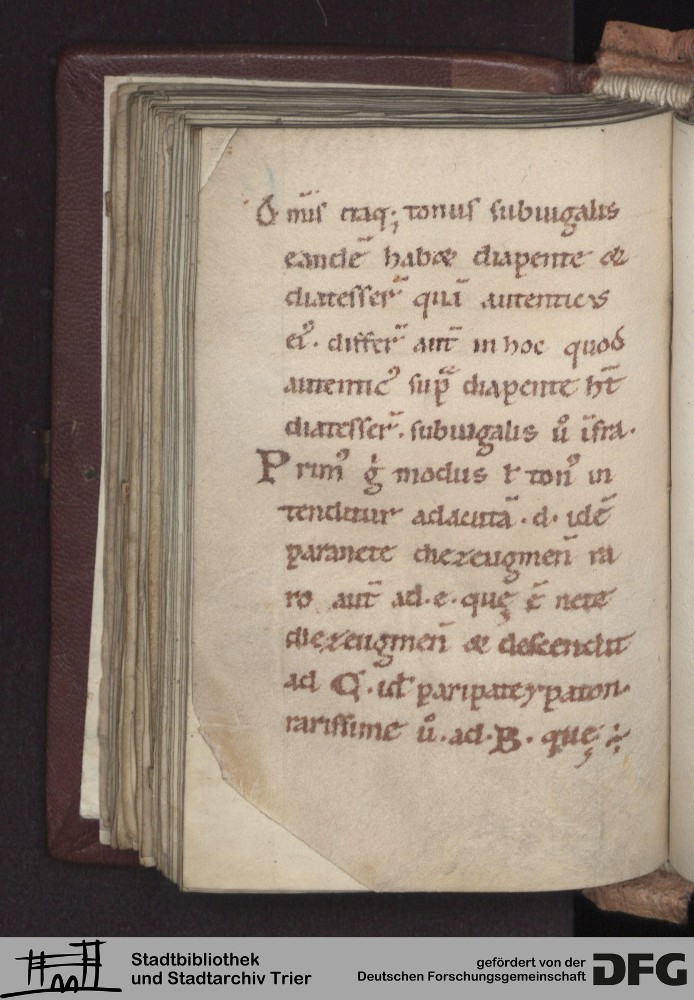 Om̅is itaq; tonus subiugalis
eande̅ habet diapente et
diatesser̅ qua̅ autenticus
ei᾽. differ̅ aut̅ in hoc quod
autentic᾽ sup̅ᵃ diapente ht̅
diatesser̅. subiugalis ů i̅fra.
Prim᾽ g̊ modus ł ton᾽ in
tenditur ad acuta̅ .d. ide̅
paranete diezeugmen̅ ra
ro aut̅ ad .e. quę e̅ nete
diezeugmen̅ et descendit
ad C. id̅ paripateypaton.
rarissime ů. ad .B. quę ÷
Stadtbibliothek
und Stadtarchiv Trier
gefördert von der
Deutschen Forschungsgemeinschaft
DFG